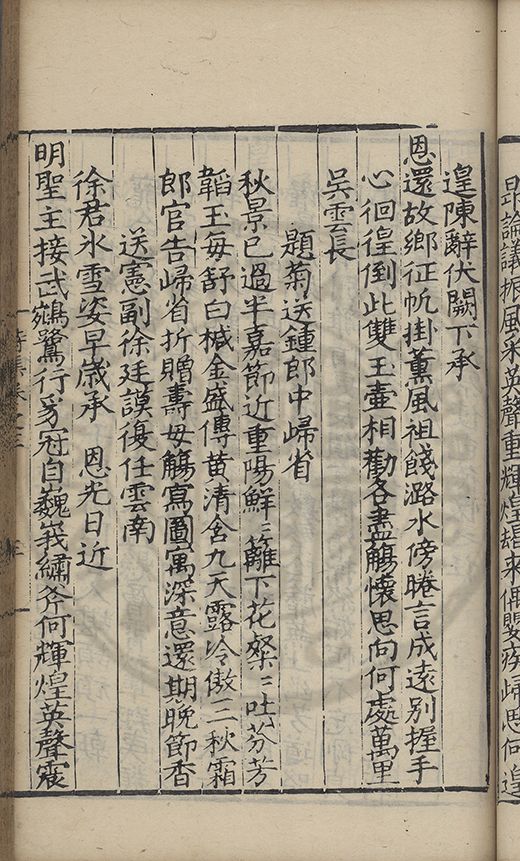 昂論議振風采英聲重輝煌胡来偶嬰疾歸思何遑
遑陳辭伏闕下承
恩還故鄉征帆掛薰風祖餞潞水傍睠言成遠別握手
心徊徨倒此雙玉壷相勸各盡觴懷思向何處萬里
吳雲長
題菊送鍾郎中歸省
秋景已過半嘉節近重陽鮮〻籬下花粲〻吐芬芳
韜玉每舒白椷金盛傳黄清含九天露冷傲三秋霜
郎官告歸省折贈壽母觴寫圖寓深意還期晚節香
送憲副徐廷謨復任雲南
徐君氷雪姿早歲承 恩光日近
明聖主接武鵷鷺行豸冠自巍峩繡斧何輝煌英聲震
詩集卷之三
三